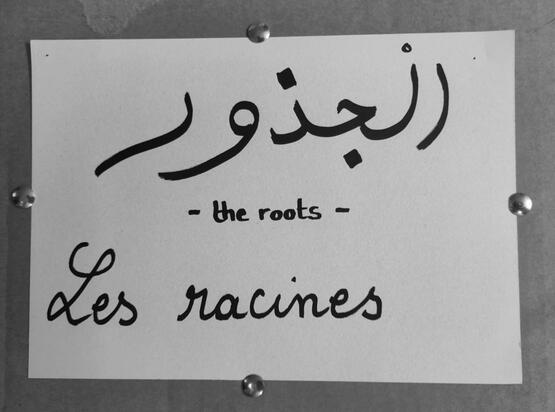 الْجذور
- the roots -
Les racines